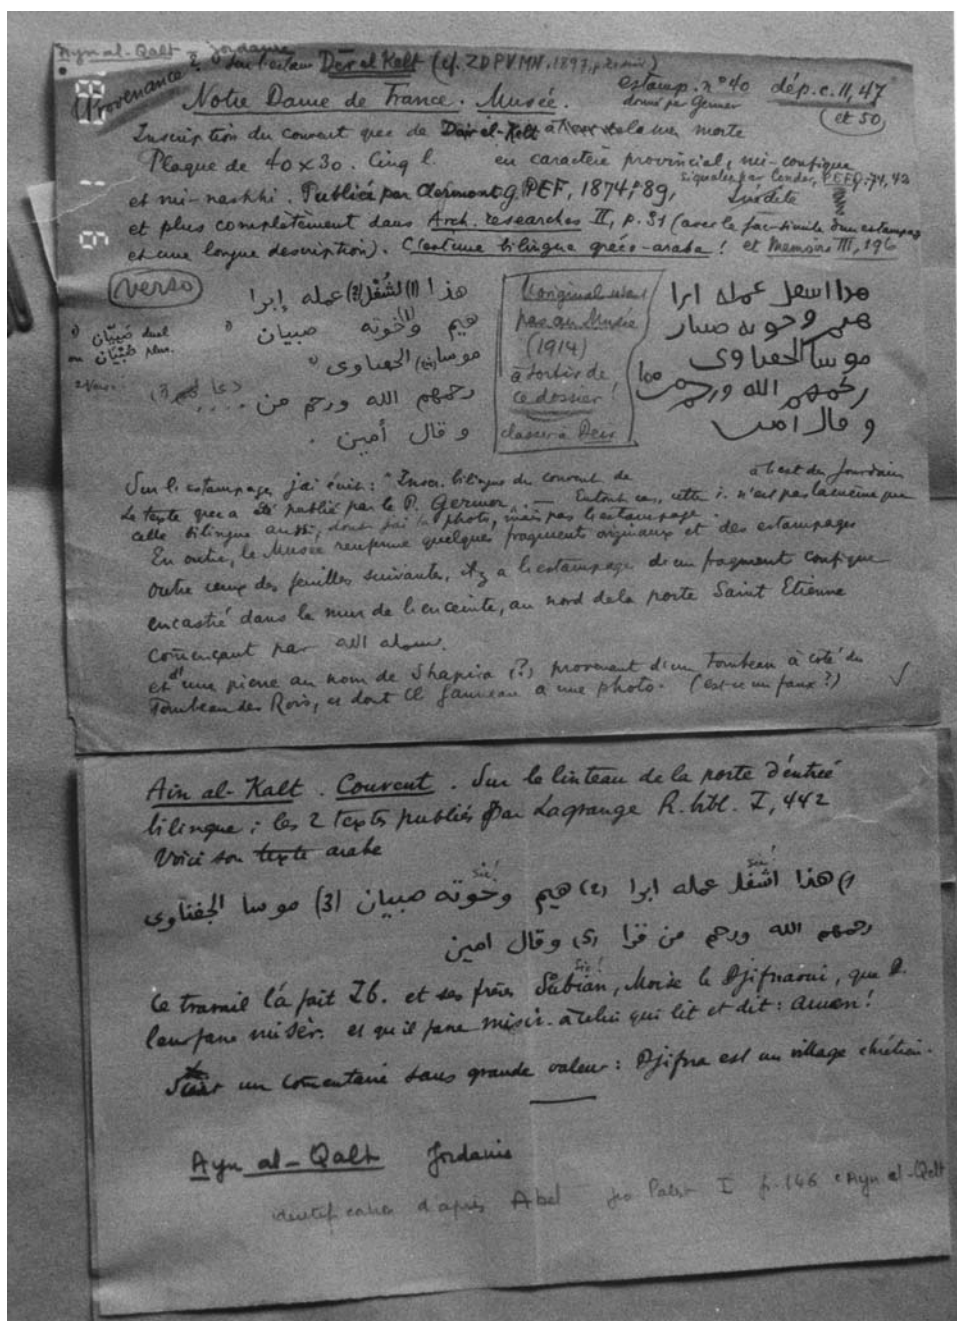 Ayn al-Qalt = Jordanie
Provenance? Sur l'estamp. Dēr el Kelt (cf. ZDPV MN. 1897,
estamp. n° 40 dép. c. II, 47
donné par Germer (et 50)
Notre Dame de France. Musée.
Inscription du couvent grec de Deir el-Kelt à la mer morte
Plaque de 40 x 30. Cinq l. en caractère provincial, mi-coufique
signalée par Conder, PEFQ. 74,
et mi-naskhi. Publiée par Clermont G. PEF, 1874, 89, Inédite
et plus complètement dans Arch. researches II, p. 31 (avec le fac-similé d'un estampage
et une longue description). C'est une bilingue gréco-arabe! et Memoirs III, 196
verso
هذا (1) لشُغْل (2) عمله إبرا
هيم وأخوته صبيان
موسا الحفناوى
رحمهم الله ورحم من
و قال أمين .
1) صَبِيّان duel
ou صِبْيَان plur.
L'original n'est
pas au Musée
(1914)
à sortir de
ce dossier!
classer à Deir
هدا اسعل عمله ابرا
هيم وحوته صبيان
موسا الحفناوى
رحمهم الله ورحم
و قال امين
Sur l'estampage j'ai écrit : "Inscr. bilingue du couvent de à l'est du Jourdain
Le texte grec a été publié par le P. Germer. — En tout cas, cette i. n'est pas la même que
celle bilingue aussi, dont j'ai la photo, mais pas l'estampage.
En outre, le Musée renferme quelques fragments originaux et des estampages
Outre ceux des feuilles suivantes, il y a l'estampage d'un fragment coufique
encastré dans le mur de l'enceinte, au nord de la porte Saint Etienne
començant par
et d'une pierre au nom de Shapira (?) provenant d'un tombeau à côté du
Tombeau des Rois, et dont Cl. Ganneau a une photo. (est-ce un faux?)
Ain al-Kalt. Couvent. Sur le linteau de la porte d'entrée
bilingue ; les 2 textes publiés par Lagrange R. bibl. I, 442
Voici son texte arabe
Sic! Sic!
1) هذا اشغل عمله ابرا (2) هيم وخوته صبيان (3) موسا الجفناوى
رحمهم الله ورحم من قرا (5) وقال امين
Sic!
Ce travail l'a fait Ib. et ses frères Sabian, Moïse le Djifnaoui, que D.
leur fane misér. et qu'il fane misér. à celui qui lit et dit : amen!
Suit un comentaire sans grande valeur : Djifna est un village chrétien.
Ayn al-Qalt Jordanie
identification d'après Abel Géo Palest I p. 146 "Ayn al-Qelt